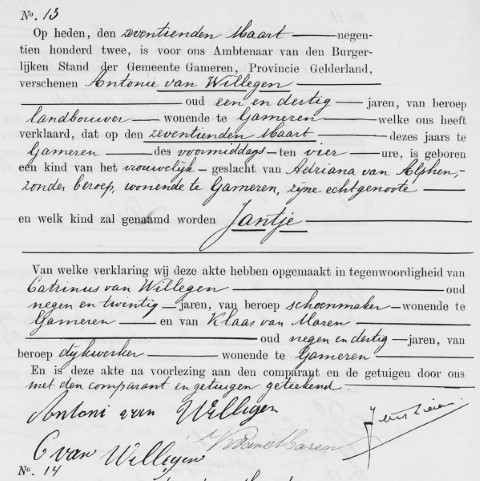 No. 13
Op heden, den zeventienden Maart negen-
tien honderd twee, is voor ons Ambtenaar van den Burger-
lijken Stand der Gemeente Gameren, Provincie Gelderland,
verschenen Antonie van Willegen
oud een en dertig jaren, van beroep
landbouwer wonende te Gameren welke ons heeft
verklaard, dat op den zeventienden Maart dezes jaars te
Gameren des voormiddags ten vier ure, is geboren
een kind van het vrouwelijk geslacht van Adriana van Alphen,
zonder beroep, wonende te Gameren, zijne echtgenoote
en welk kind zal genaamd worden Jantje
Van welke verklaring wij deze akte hebben opgemaakt in tegenwoordigheid van
Catrinus van Willegen oud
negen en twintig jaren, van beroep schoenmaker wonende te
Gameren en van Klaas van Maren
oud negen en dertig jaren, van
beroep dijkwerker wonende te Gameren
En is deze akte na voorlezing aan den comparant en de getuigen door ons
met den comparant en getuigen geteekend
Antoni van Willigen
C van Willigen
No. 14